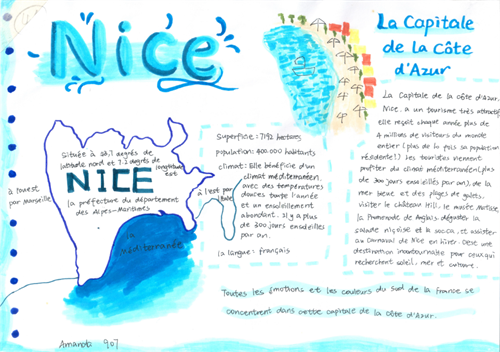 Nice
La Capitale
de la Côte
d'Azur
Située à 43,7 degrés de
latitude nord et 7.2 degrés de
longitude
est
NICE
la préfecture du département
des Alpes-Maritimes
à l'ouest
par Marseille
à l'est par
Italie
la
méditerranée
Superficie: 7192 hectares
population: 400.000 habitants
climat: Elle bénéficie d'un
climat méditerranéen,
avec des températures
douces toute l'année
et un ensoleillement
abondant. il y a plus
de 300 jours ensoleillés
par an.
la langue: français
La Capitale de la côte d'Azur.
Nice. a un tourisme très attractif,
elle reçoit chaque année plus de
4 millions de visiteurs du monde
entier (plus de la fois sa population
résidente!) Les touristes viennent
profiter du climat méditerranéen (plus
de 300 jours ensoleillés par an), de la
mer bleue et des plages de galets.
visiter le château Hill. le musée Matisse,
la Promenade de Anglais, déguster la
salade niçoise et la socca, et assister
au Carnaval de Nice en hiver. C'est une
destination incontournable pour ceux qui
recherchent soleil, mer et culture.
Toutes les émotions et les couleurs du sud de la France se
concentrent dans cette capitale de la côte d'Azur.
907